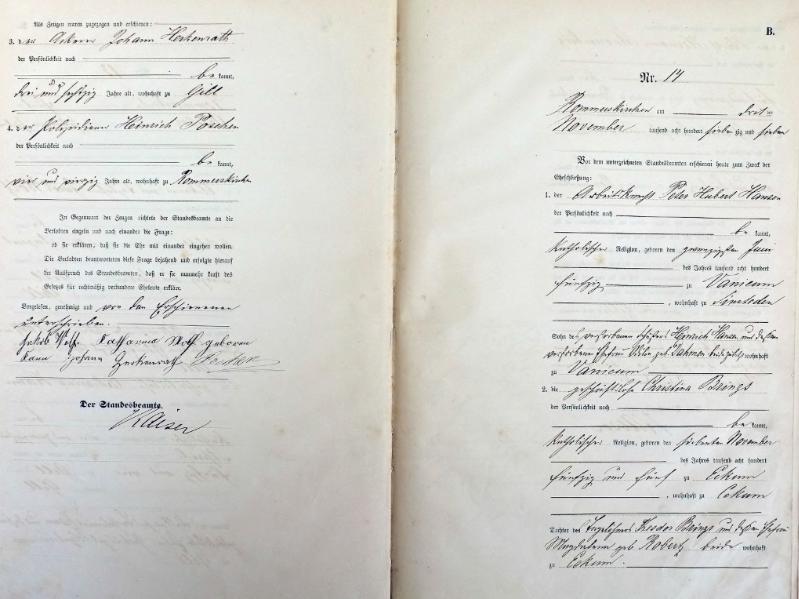 Als Zeugen waren zugezogen und erschienen:
3. der Ackerer Johann Herkenrath
der Persönlichkeit nach
be kannt,
drei und sechszig Jahre alt, wohnhaft zu Gill
4. der Polizeidiener Heinrich Poschen
der Persönlichkeit nach
be kannt,
vier und vierzig Jahre alt, wohnhaft zu Rommerskirchen
In Gegenwart der Zeugen richtete der Standesbeamte an die
Verlobten einzeln und nach einander die Frage:
ob sie erklären, daß sie die Ehe mit einander eingehen wollen.
Die Verlobten beantworteten diese Frage bejahend und erfolgte hierauf
der Ausspruch des Standesbeamten, daß er sie nunmehr kraft des
Gesetzes für rechtmäßig verbundene Eheleute erkläre.
Vorgelesen, genehmigt und von den Erschienenen
unterschrieben.
Jakob Wolf Catharina Wolf geborene
Johann Herkenrath
Der Standesbeamte.
Kaiser
B.
Nr. 14
Rommerskirchen am drei=
November tausend acht hundert sieben zig und sieben
Vor dem unterzeichneten Standesbeamten erschienen heute zum Zweck der
Eheschließung:
1. der Arbeitsknecht Peter Hubert Hansen
der Persönlichkeit nach
be kannt,
katholischer Religion, geboren den zwanzigsten Juni
des Jahres tausend acht hundert
fünfzig zu Vanicum
, wohnhaft zu Sinsteden
Sohn des verstorbenen Heinrich Hansen und dessen
verstorbenen Ehefrau geb. Dahmen wohnhaft
zu Vanicum
2. die geschäftslose Christina Brings
der Persönlichkeit nach
be kannt,
katholischer Religion, geboren den siebenten November
des Jahres tausend acht hundert
fünfzig und fünf zu Eckum
, wohnhaft zu Eckum
Tochter des Tagelöhners Theodor Brings und dessen Ehefrau
Magdalena geb. Robertz beide wohnhaft
zu Eckum.